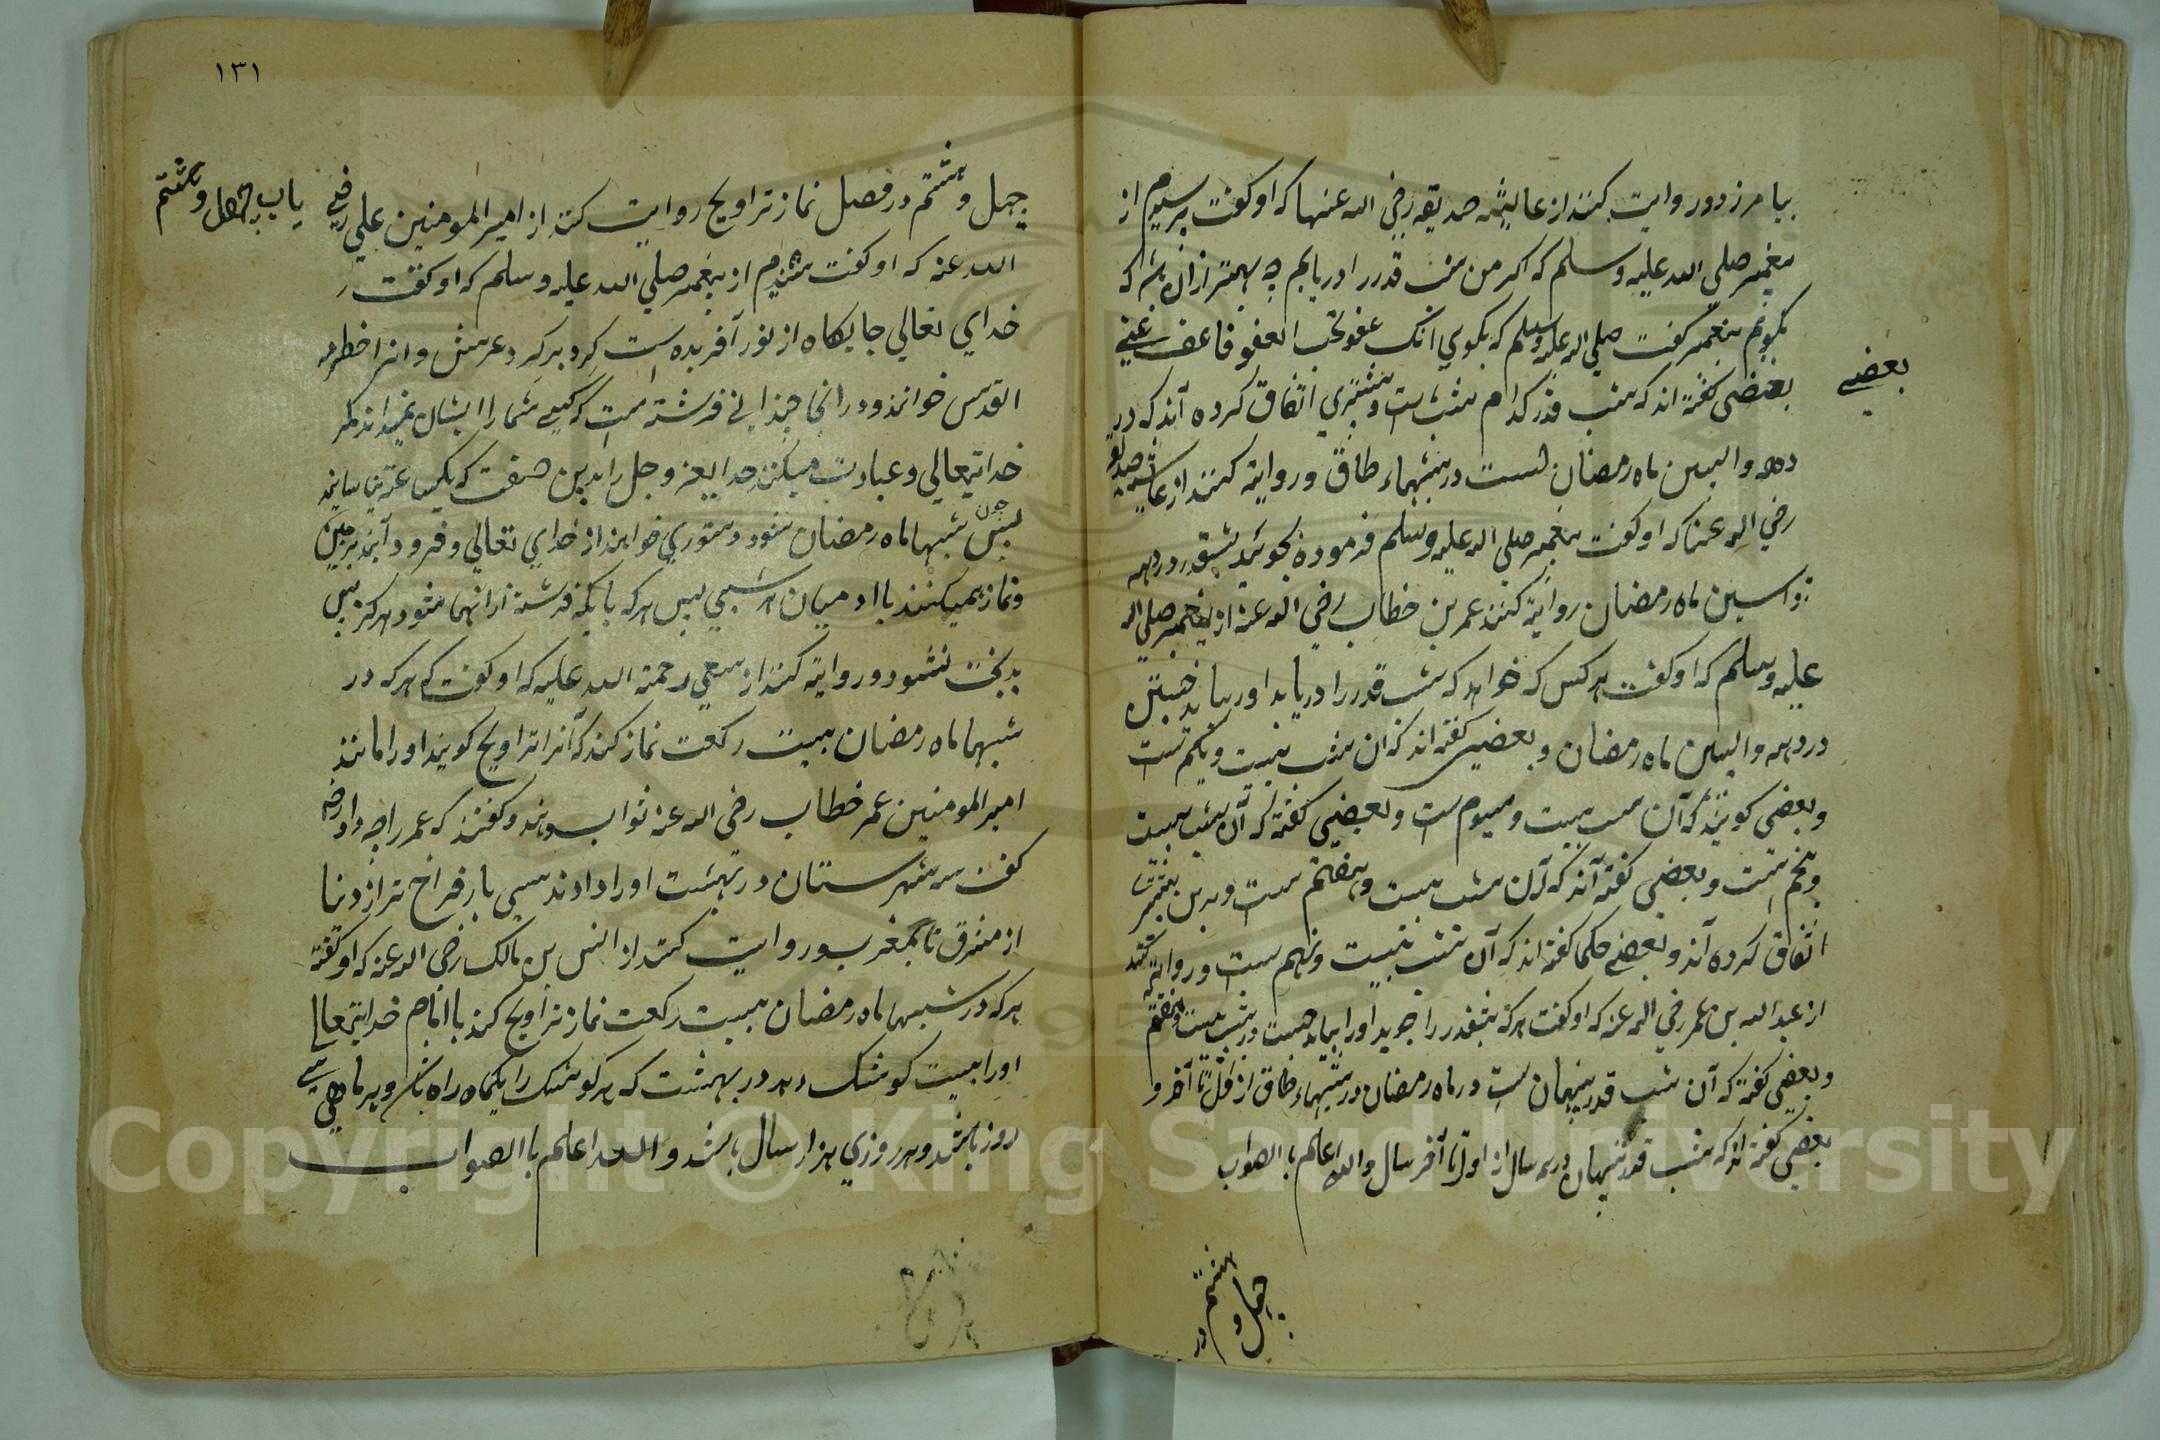 بیامرزد و روایت کنند از عایشه صدیقه رضی الله عنها که او کفت پرسیدم از
پیغمبر صلی الله علیه وسلم که اکر من شب قدر را دریابم چه بهتر از ان باشد که
بکویم پیغمبر کفت صلی الله علیه وسلم که بکوی انک عفو تحب العفو فاعف عنی
بعضی
بعضی کفته اند که شب قدر کدام شب است و بیشتری اتفاق کرده آند که در
دهه واپسین ماه رمضان است در شبهاء طاق و روایة کنند از عایشه صدیقه
رضی الله عنها که او کفت پیغمبر صلی الله علیه وسلم فرموده بجوئید شبقدر در دهه
واپسین ماه رمضان روایة کنند عمر بن خطاب رضی الله عنه از پیغمبر صلی الله
علیه وسلم که او کفت هر کس که خواهد که شب قدر را دریابد اورا باید جستن
در دهه واپسین ماه رمضان و بعضی کفته اند که ان شب بیست ویکم است
و بعضی کویند که آن شب بیست و سیوم است و بعضی کفته که آن شب بیست
و پنجم است و بعضی کفته آند که آن شب بیست و هفتم است و برین بیشتر
اتفاق کرده آند و بعضی حکما کفته اند که آن شب بیست و نهم است و روایة کنند
از عبد الله بن عمر رضی الله عنه که او کفت هر که شبقدر را جوید اورا باید جست در شب بیست و هفتم
و بعضی کفته که آن شب قدر پنهان است در ماه رمضان در شبهاء طاق از اول تا آخر و
بعضی کفته اند که شب قدر پنهان در همه سال از اول تا آخر سال والله اعلم با الصواب
چهل و هشتم در
١٣١
باب چهل و هشتم
چهل و هشتم در فضل نماز تراویح روایت کنند از امیر المومنین علی رضی
الله عنه که او کفت شنیدم از پیغمبر صلی الله علیه وسلم که او کفت
خدای تعالی جایکاه از نور آفریده است کرد بر کرد عرش و انرا خطیره
القدس خوانند و در انجا چندانی فرشته است که کسی شمار ایشان نمیداند مکر
خدایتعالی و عبادت میکنند خدایعز وجل را بدین صفت که یکساعة نیاسایند
پس چون شبهاء ماه رمضان شود دستوری خواهند از خدای تعالی و فرود آیند بر زمین
و نماز همیکنند باادمیان هر شبی پس هر که بایکه فرشته ازانها شود هرکز پس
بدبخت نشود و روایة کنند از شعبی رحمة الله علیه که او کفت که هر که در
شبهاء ماه رمضان بیست رکعت نماز کند که آنرا تراویح کویند اورا مانند
امیر المومنین عمر خطاب رضی الله عنه ثواب بدهند و کفتند که عمر را چه دادند
کفت سه شهرستان در بهشت اورا دادند سی بار فراخ تر از دنیا
از مشرق تا بمغرب و روایت کنند از انس بن مالک رضی الله عنه که او کفته
هر که در شبهاء ماه رمضان بیست رکعت نماز تراویح کند باامام خدایتعالی
اورا بیست کوشک دهد در بهشت که هر کوشک را یکماه راه باشد و هر ماهی سی
روز باشد و هر روزی هزار سال باشد و الله اعلم با الصواب
Copyright © King Saud University